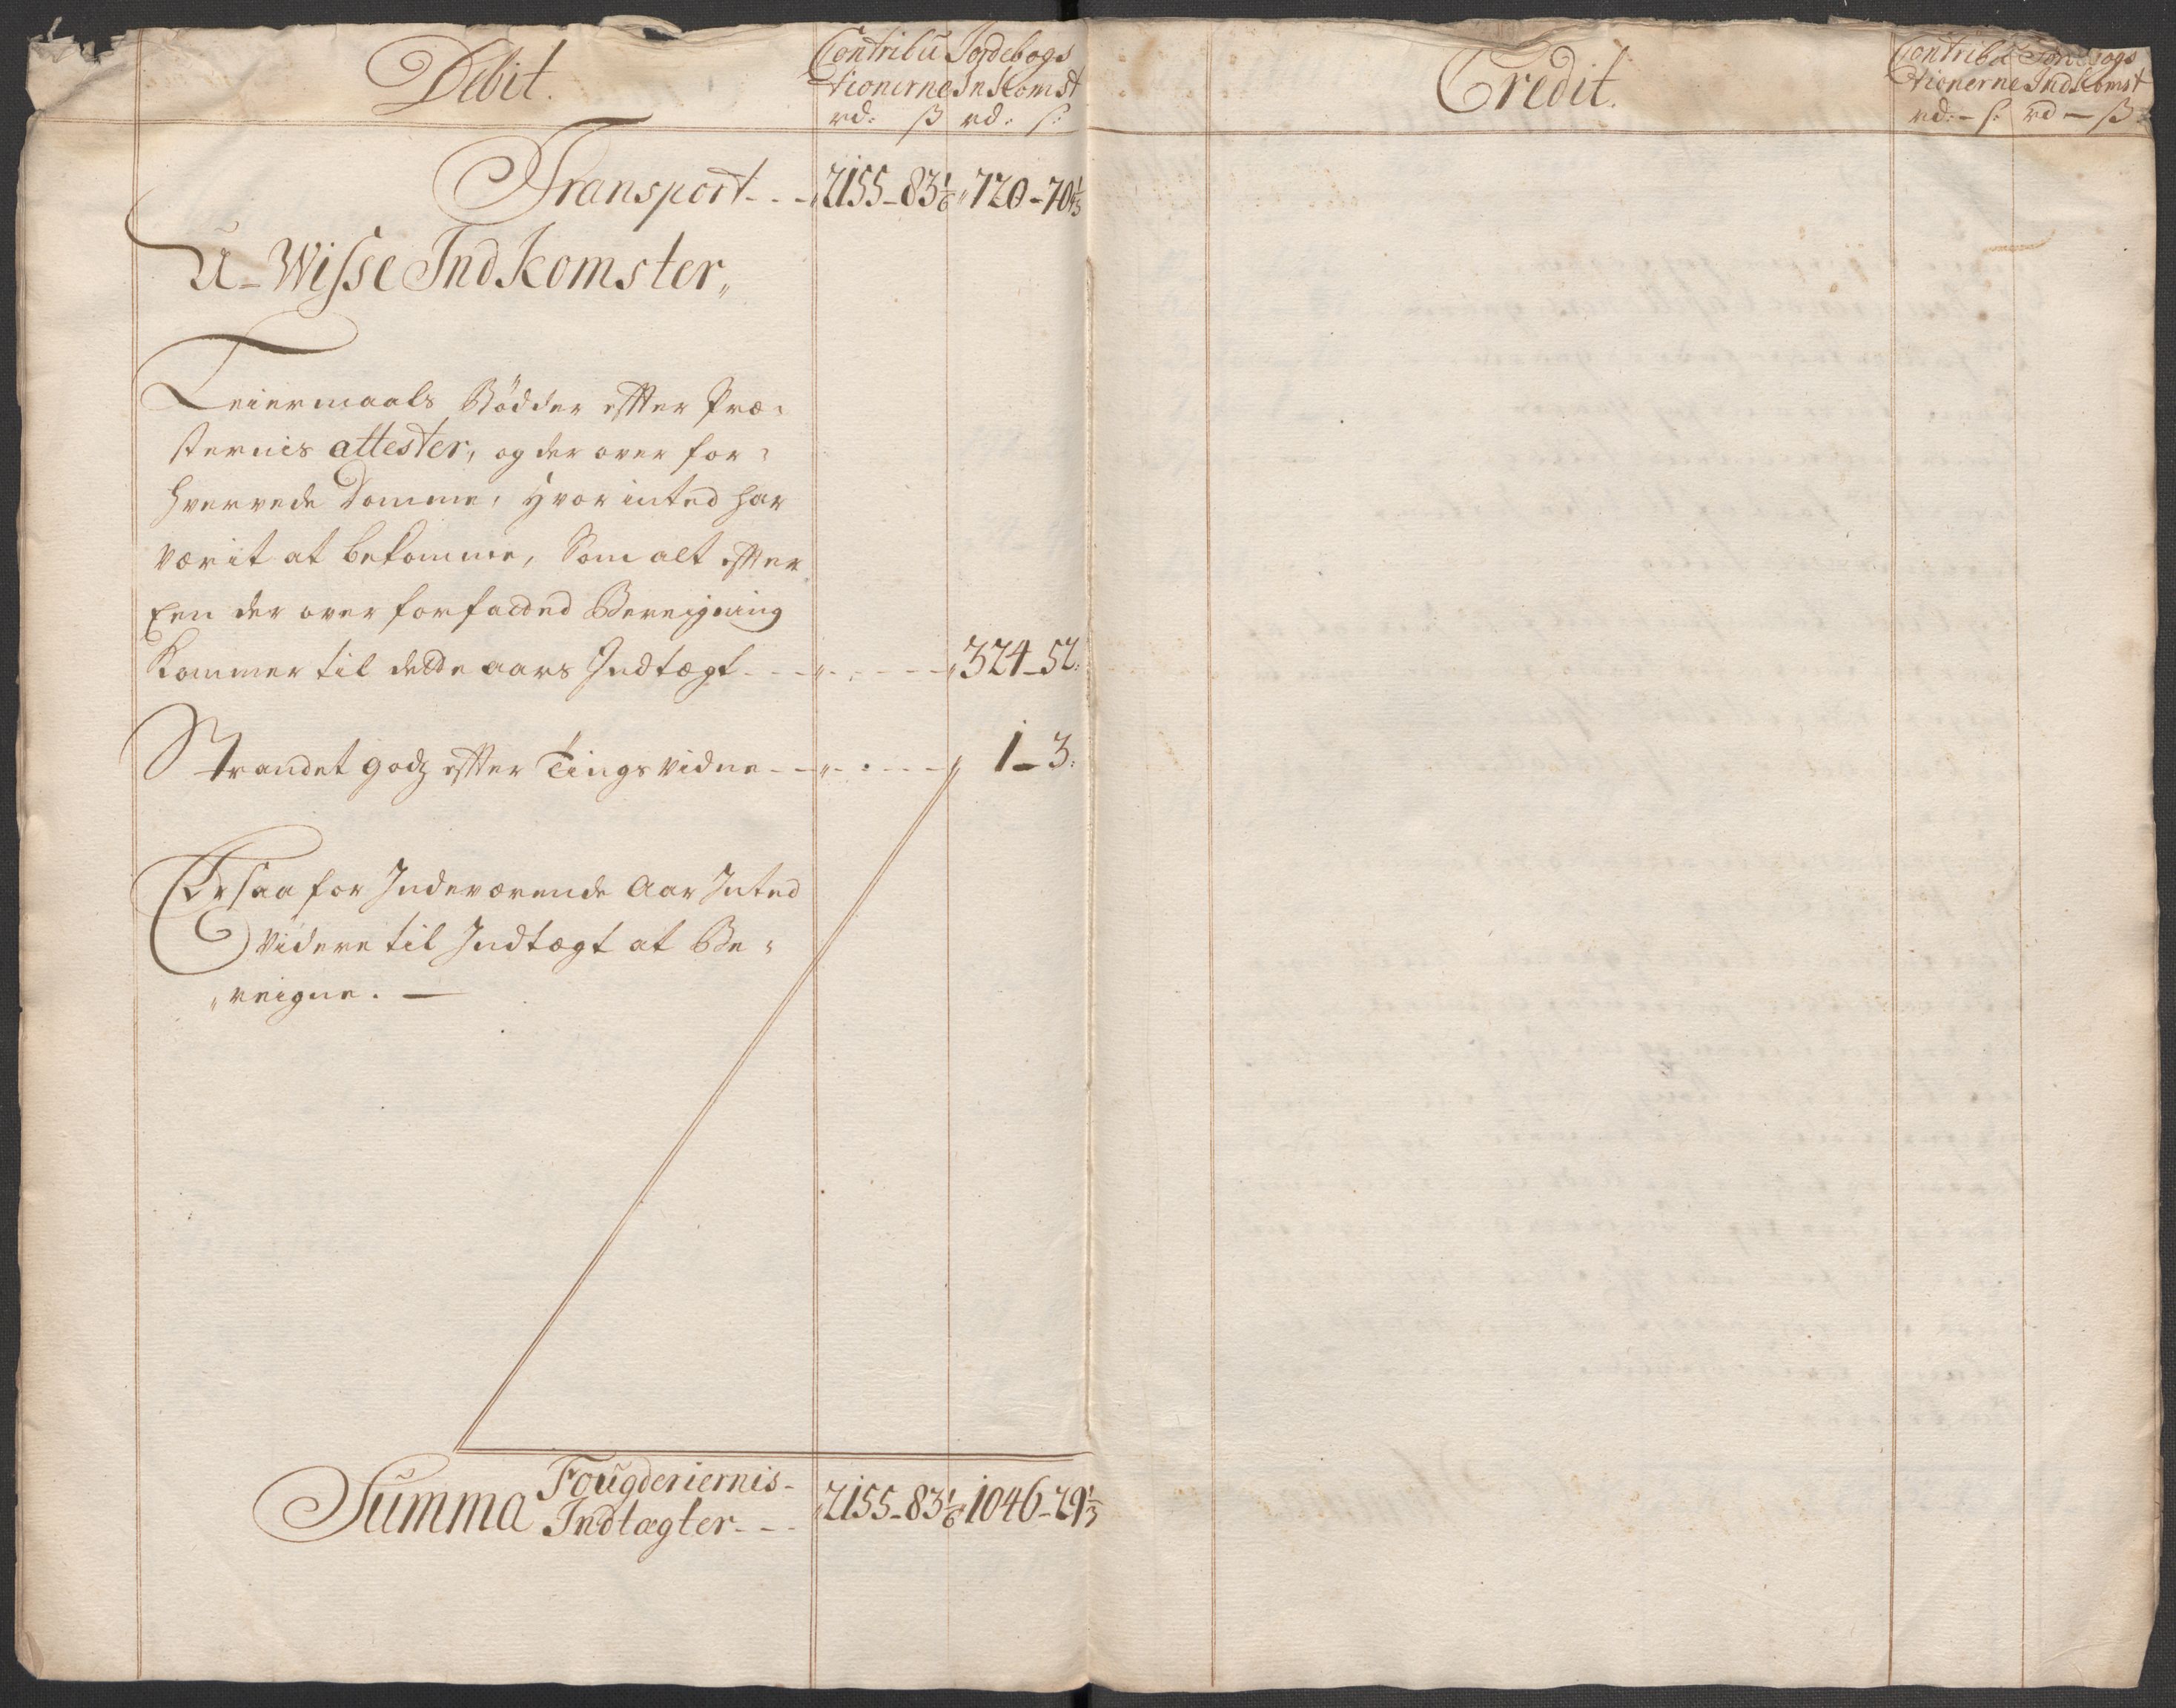 Debit.
Contribu Jordebogs
tionerne IndKomst
rd: ß rd: ß:
Transport - - - 2155 - 83 1/6 720 - 70 1/3
U-Wisse IndKomster,,
Leiermaals Bödder effter Præ-
sternis attester, og der over for-
hvervede Domme, hvor inted har
værit at bekomme, Som alt effter
Een der over forfatted Bereigning
Kommer til dette aars Indtægt - - - 324 - 52:
Strandet godz effter Tingsvidne - - - 1 - 3:
Er saa for Indeværende Aar Inted
videre til Indtægt at Be-
reigne. —
Summa Fougderiernis-
Indtægter - - - 2155 - 83 1/6 1046 - 29 1/3
Credit.
Contribu Jordebogs
tionerne IndKomst
rd: - ß: rd - ß